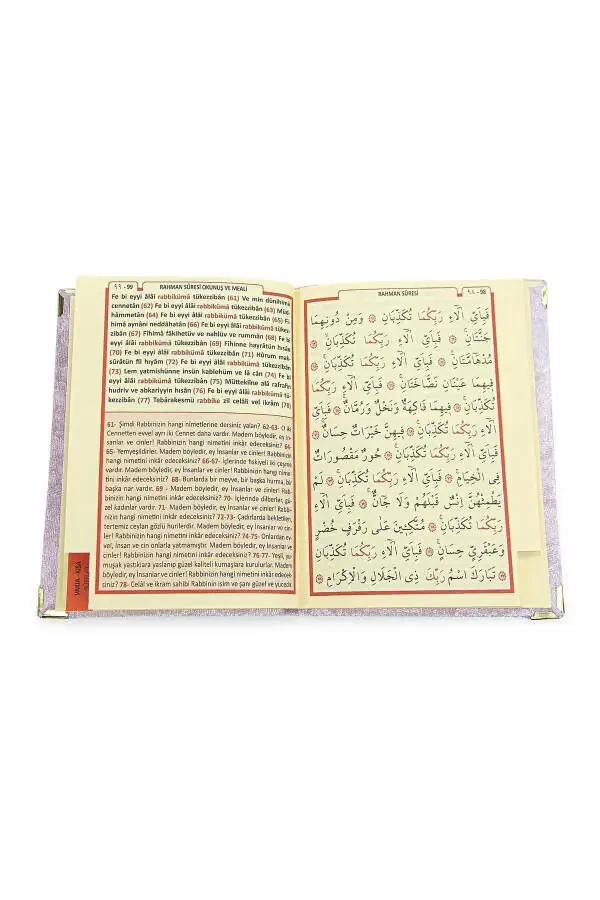 ٩٩ - 99 RAHMAN SÛRESİ OKUNUŞ VE MEALİ
Fe bi eyyi âlâi rabbikümâ tükezzibân (61) Ve min dûnihimâ
cennetân (62) Fe bi eyyi âlâi rabbikümâ tükezzibân (63) Müd-
hâmmetân (64) Fe bi eyyi âlâi rabbikümâ tükezzibân (65) Fi
himâ aynâni neddâhatân (66) Fe bi eyyi âlâi rabbikümâ tükez-
zibân (67) Fîhimâ fâkihetüv ve nahlüv ve rummân (68) Fe bi
eyyi âlâi rabbikümâ tükezzibân (69) Fîhinne hayrâtün hısân
(70) Fe bi eyyi âlâi rabbikümâ tükezzibân (71) Hûrum mak-
sûrâtün fil hıyâm (72) Fe bi eyyi âlâi rabbikümâ tükezzibân
(73) Lem yatmishünne insün kablehüm ve lâ cân (74) Fe bi
eyyi âlâi rabbikümâ tükezzibân (75) Müttekiîne alâ rafrafin
hudriv ve abkariyyin hısân (76) Fe bi eyyi âlâi rabbikümâ tü-
kezzibân (77) Tebârakesmü rabbike zil celâli vel ikrâm (78)
61- Şimdi Rabbinizin hangi nimetlerine dersiniz yalan? 62-63- O iki
Cennetten evvel ayrı iki Cennet daha vardır. Madem böyledir, ey in-
sanlar ve cinler! Rabbinizin hangi nimetini inkâr edeceksiniz? 64-
65- Yemyeşildirler. Madem böyledir, ey İnsanlar ve cinler! Rabbinizin
hangi nimetini inkâr edeceksiniz? 66-67- İçlerinde fıskiyeli iki çeşme
vardır. Madem böyledir, ey İnsanlar ve cinler! Rabbinizin hangi nime-
tini inkâr edeceksiniz? 68- Bunlarda bir meyve, bir başka hurma, bir
başka nar vardır. 69 - Madem böyledir, ey İnsanlar ve cinler! Rab-
binizin hangi nimetini inkâr edeceksiniz? 70- İçlerinde dilberler, gü-
zel kadınlar vardır. 71- Madem böyledir, ey İnsanlar ve cinler! Rab-
binizin hangi nimetini inkâr edeceksiniz? 72-73- Çadırlarda bekletilen,
tertemiz ceylan gözlü hurilerdir. Madem böyledir, ey İnsanlar ve cin-
ler! Rabbinizin hangi nimetini inkâr edeceksiniz? 74-75- Onlardan ev-
vel, insan ve cin onlarla yatmamıştır. Madem böyledir, ey İnsanlar ve
cinler! Rabbinizin hangi nimetini inkâr edeceksiniz? 76-77- Yeşil, yu-
muşak yastıklara yaslanıp güzel kaliteli kumaşlara kurulurlar. Madem
böyledir, ey İnsanlar ve cinler! Rabbinizin hangi nimetini inkâr edecek-
siniz? 78- Celâl ve ikram sahibi Rabbinin isim ve şanı güzel ve yücedir.
RAHMAN SÛRESİ ٩٨ - 98
فَبِاَيِّ اٰلَٓاءِ رَبِّكُمَا تُكَذِّبَانِ ﴿٦١﴾ وَمِنْ دُونِهِمَا
جَنَّتَانِۚ ﴿٦٢﴾ فَبِاَيِّ اٰلَٓاءِ رَبِّكُمَا تُكَذِّبَانِۙ ﴿٦٣﴾
مُدْهَٓامَّتَانِۚ ﴿٦٤﴾ فَبِاَيِّ اٰلَٓاءِ رَبِّكُمَا تُكَذِّبَانِۚ ﴿٦٥﴾
فِيهِمَا عَيْنَانِ نَضَّاخَتَانِۚ ﴿٦٦﴾ فَبِاَيِّ اٰلَٓاءِ رَبِّكُمَا
تُكَذِّبَانِ ﴿٦٧﴾ فِيهِمَا فَاكِهَةٌ وَنَخْلٌ وَرُمَّانٌۚ ﴿٦٨﴾ فَبِاَيِّ
اٰلَٓاءِ رَبِّكُمَا تُكَذِّبَانِۚ ﴿٦٩﴾ فِيهِنَّ خَيْرَاتٌ حِسَانٌۚ ﴿٧٠﴾
فَبِاَيِّ اٰلَٓاءِ رَبِّكُمَا تُكَذِّبَانِۚ ﴿٧١﴾ حُورٌ مَقْصُورَاتٌ
فِي الْخِيَامِۚ ﴿٧٢﴾ فَبِاَيِّ اٰلَٓاءِ رَبِّكُمَا تُكَذِّبَانِۚ ﴿٧٣﴾ لَمْ
يَطْمِثْهُنَّ اِنْسٌ قَبْلَهُمْ وَلَا جَٓانٌّۚ ﴿٧٤﴾ فَبِاَيِّ اٰلَٓاءِ
رَبِّكُمَا تُكَذِّبَانِۚ ﴿٧٥﴾ مُتَّكِـِٔينَ عَلٰى رَفْرَفٍ خُضْرٍ
وَعَبْقَرِيٍّ حِسَانٍۚ ﴿٧٦﴾ فَبِاَيِّ اٰلَٓاءِ رَبِّكُمَا تُكَذِّبَانِ
﴿٧٧﴾ تَبَارَكَ اسْمُ رَبِّكَ ذِي الْجَلَالِ وَالْاِكْرَامِ ﴿٧٨﴾